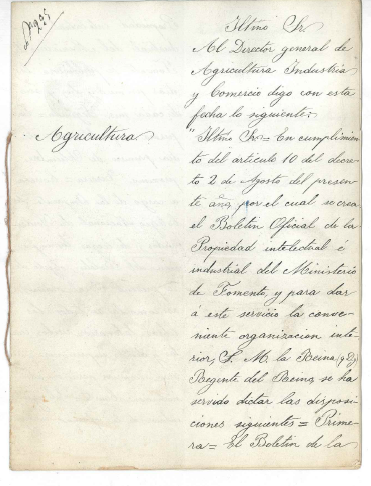 Nº 235
Iltmo Sr
Al Director general de
Agricultura Industria
y Comercio digo con esta
fecha lo siguiente:
Agricultura
"Iltmo Sr = En cumplimien
to del articulo 10 del decre
to 2 de Agosto del presen
te año, por el cual se crea
el Boletin Oficial de la
Propiedad intelectual é
industrial del Ministerio
de Fomento, y para dar
á este servicio la conve
niente organizacion inte
rior, S. M. la Reina (q D g)
Regente del Reino, se ha
servido dictar las disposi
ciones siguientes = Prime
ra = El Boletin de la